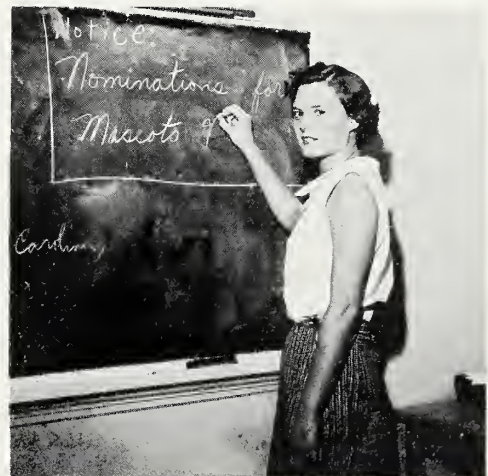 Notice:
Nominations for
Mascots